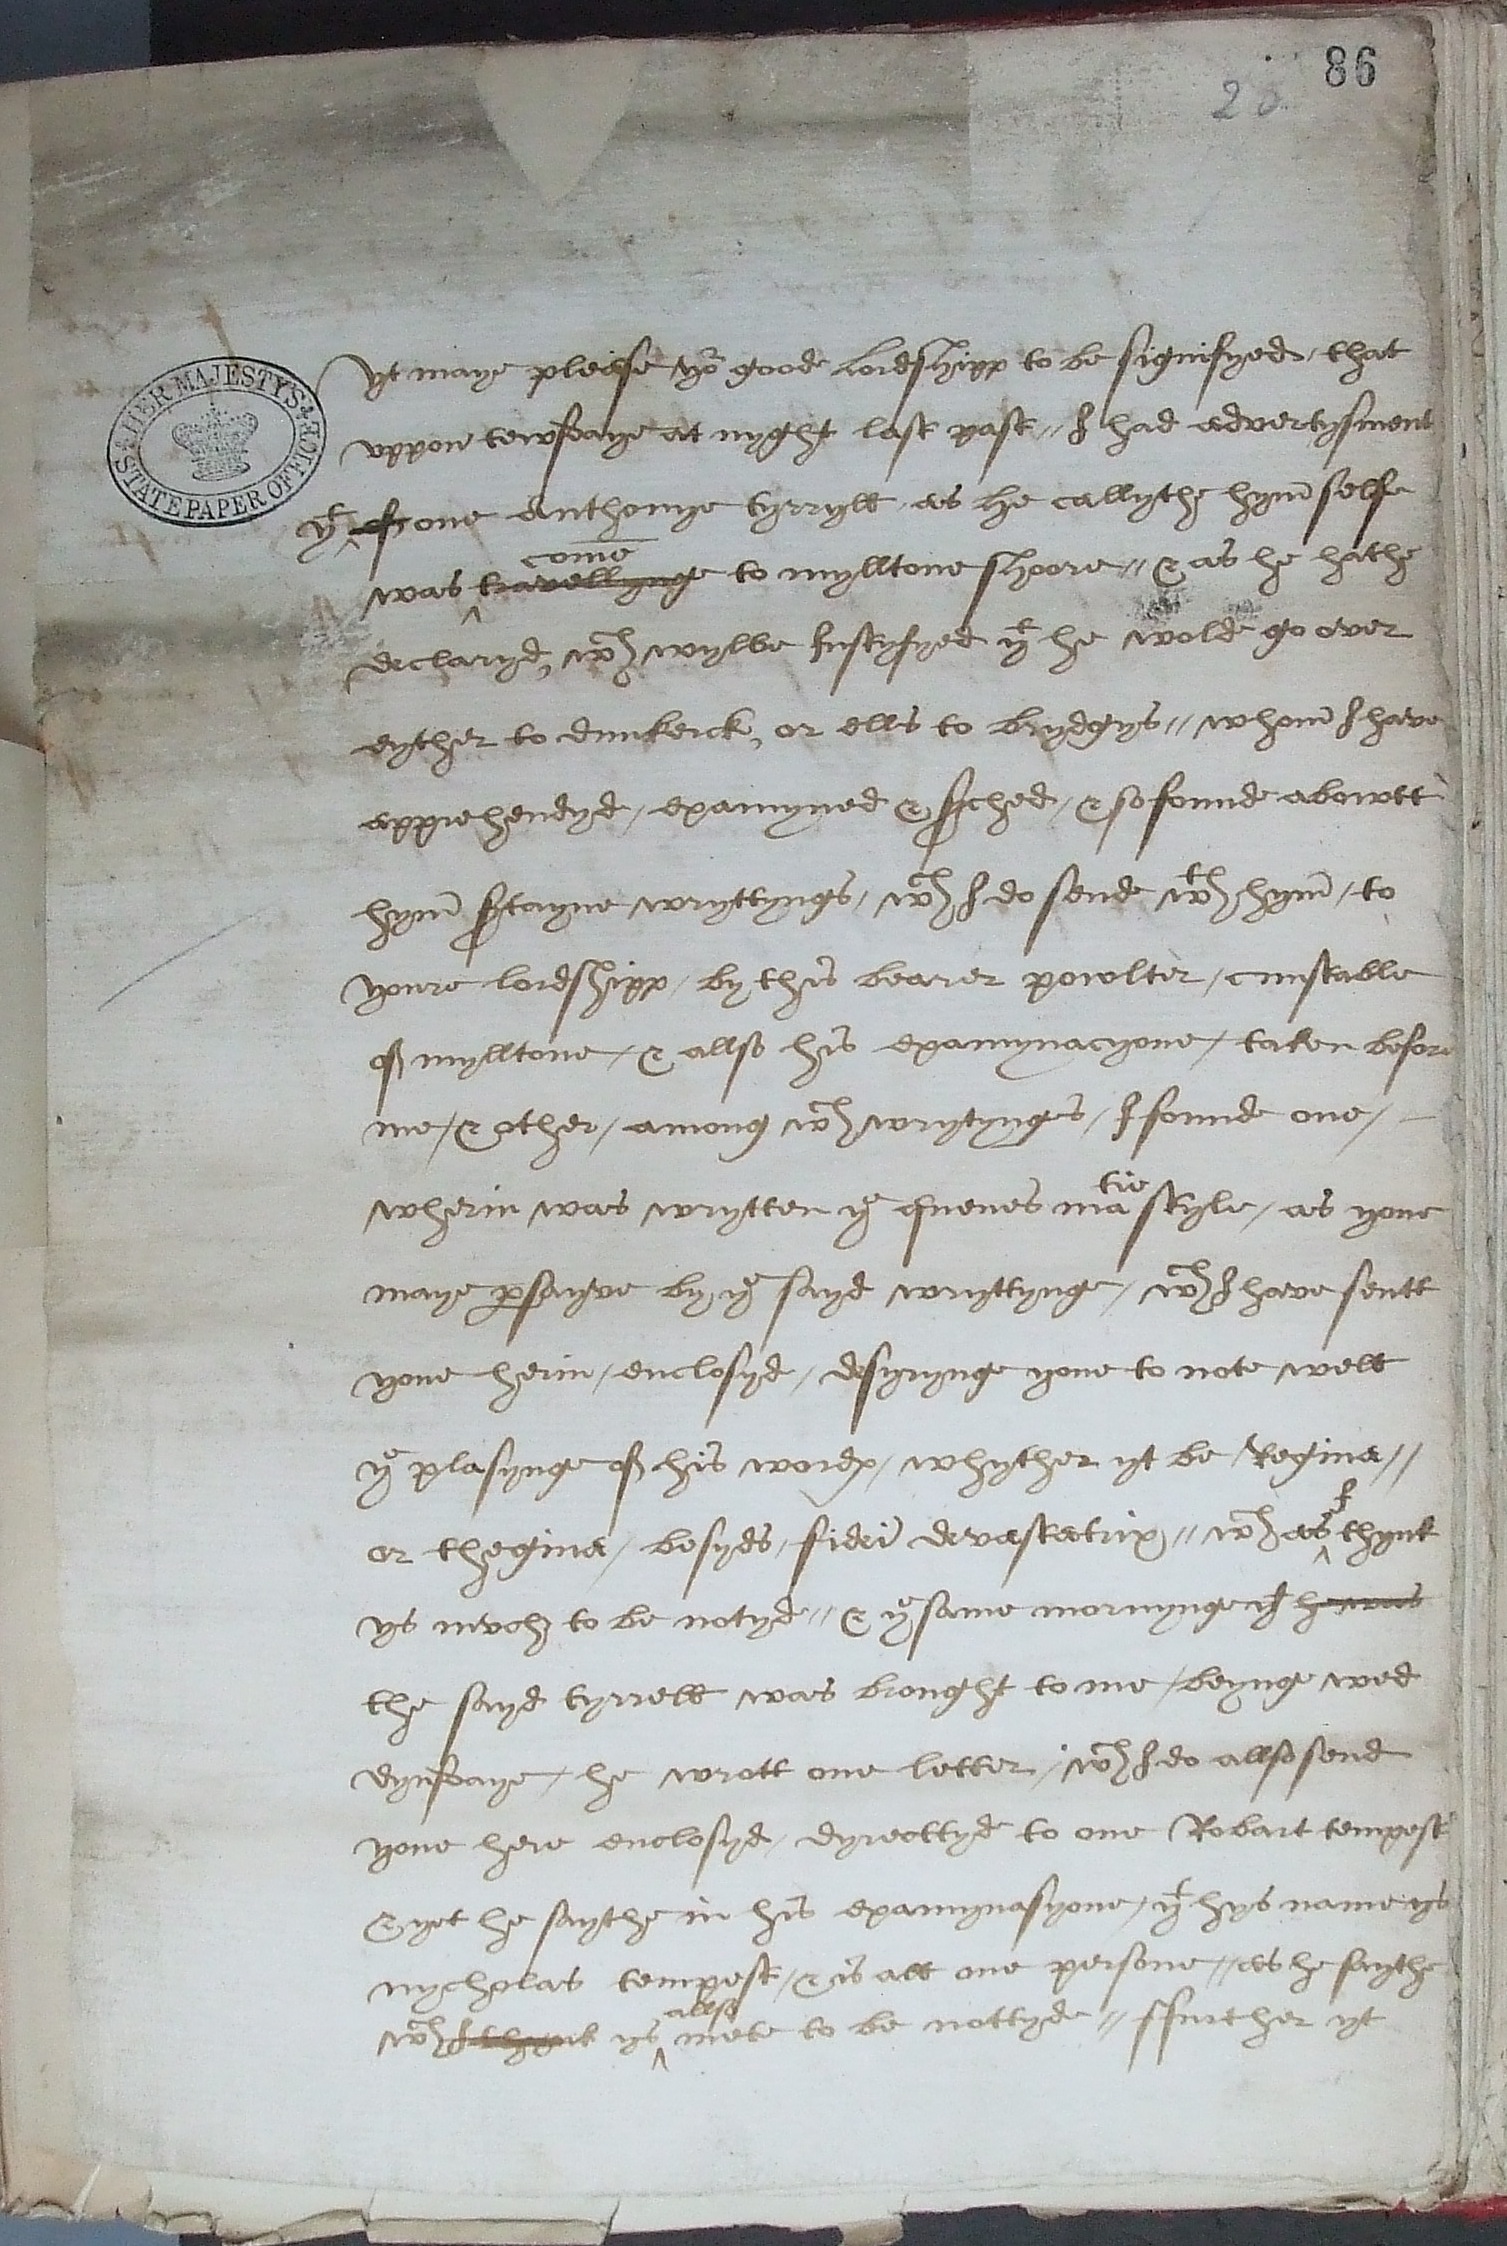 86
28
HER MAJESTY'S STATE PAPER OFFICE
yt maye please yor goode lordshipp to be signifyed, that
vppon tewsdaye at nyght last past // I had advertysment
yt of one Anthonye tyrryll, as he callythe hym selfe
come
was travellynge to mylltone shoore // & as he hathe
declaryd, wch wylbe Iustyfyed yt he wolde go over
eyther to dunkerck, or ells to brydgys // whom I have
apprehendyd / examyned & serched / & so founde abowtt
hym sertayne wryttyngs / wch I do sende wth hym / to
youre lordshipp / by this bearer powlter / cunstable
of mylltone / & allso his examynacyone / taken before
me / & other / among wch wrytynges / I founde one /
wherin was wrytten ye quenes matie style / as youe
maye persayve by ye sayd wryttynge / wch I have sentt
youe herin / enclosyd / desyrynge youe to note well
ye plasynge of his wordes / whyther yt be Regina //
or thegina / besyds / fidei devastatrix // wch as I thynk
ys mvch to be notyd // & ye same mornynge yt he was
the sayd tyrrell was brought to me / beynge wed
dynsdaye / he wrott one letter / wch I do allso send
youe here enclosyd / dyrecttyd to one Robart tempest
& yet he saythe in his examynasyone / yt hys name ys
nycholas tempest / & is all one persone // as he saythe
allso
wch I thynk ys mete to be nottyde // ffurther yt